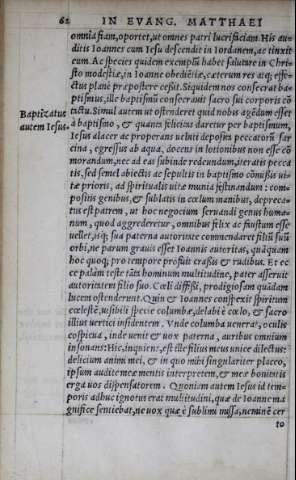 62 IN EVANG. MATTHAEI
omnia fiam, oportet, ut omnes patri lucrifaciam. His au-
ditis Ioannes cum Iesu descendit in Iordanem, ac tinxit
eum. Ac species quidem exempli habet salutare in Chri-
sto modestiæ, in Ioanne obedientiæ, cæterum res atq; effe-
ctus planè præpostere cessit. Siquidem nos consecrat ba-
ptismus, ille baptismū consecrauit sacro sui corporis cō
Baptizatus
autem Iesus.
tactu. Simul autem ut ostenderet quid nobis agēdum esset
à baptismo, & quanta felicitas daretur per baptismum,
Iesus alacer ac properans uelut deposita peccatorū sar
cina, egressus ab aqua, docens in lotionibus non esse cō
morandum, nec ad eas subinde redeundum, iteratis pecca
tis, sed semel abiectis ac sepultis in baptismo cōmissis ui-
tæ prioris, ad spiritualis uitæ munia festinandum: com-
positis genibus, & sublatis in cœlum manibus, depreca-
tus est patrem, ut hoc negocium seruandi genus huma-
num, quod aggrederetur, omnibus felix ac faustum esse
uellet, isq; sua paterna autoritate commendaret filiū suū
orbi, ne parum grauis esset Ioannis autoritas, quāquam
hoc quoq; pro tempore profuit crassis & rudibus. Et ec
ce palàm teste tāta hominum multitudine, pater asseruit
autoritatem filio suo. Cœli diffissi, prodigiosam quādam
lucem ostenderunt. Quin & Ioannes conspexit spiritum
cœlestē, uisibili specie columbæ, delabi è cœlo, & sacro
illius uertici insidentem. Vnde columba uenerat, oculis
cospicua, inde uenit & uox paterna, auribus omnium
insonans: Hic, inquiens, est ille filius meus unice dilectus:
delicium animi mei, & in quo mihi singulariter placeo,
ipsum audite meæ mentis interpretem, & meæ bonitatis
erga uos dispensatorem. Quoniam autem Iesus id tem-
poris adhuc ignotus erat multitudini, quæ de Ioanne ma
gnifice sentiebat, ne uox quæ è sublimi missa, neminē cer
to